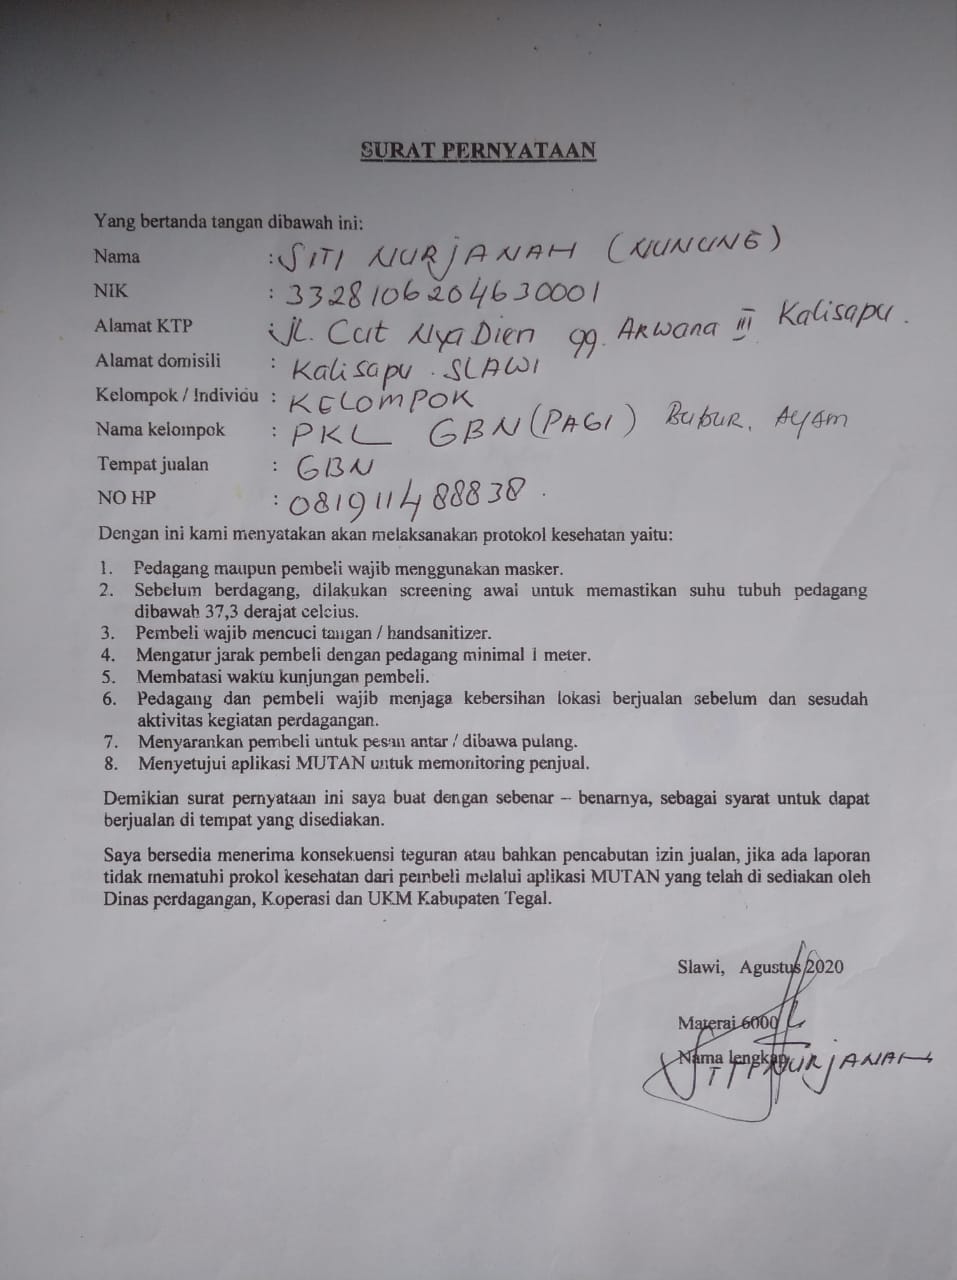 SURAT PERNYATAAN
Yang bertanda tangan dibawah ini:
Nama : SITI NURJANAH (NUNUNG)
NIK : 3328106204630001
Alamat KTP : JL. Cut Nya Dien gg. ARWANA III Kalisapu.
Alamat domisili : Kalisapu . SLAWI
Kelompok / Individu : KELOMPOK
Nama kelompok : PKL GBN (PAGI) BUBUR, AYAM
Tempat jualan : GBN
NO HP : 081911488838 .
Dengan ini kami menyatakan akan melaksanakan protokol kesehatan yaitu:
1. Pedagang maupun pembeli wajib menggunakan masker.
2. Sebelum berdagang, dilakukan screening awal untuk memastikan suhu tubuh pedagang
dibawah 37,3 derajat celcius.
3. Pembeli wajib mencuci tangan / handsanitizer.
4. Mengatur jarak pembeli dengan pedagang minimal 1 meter.
5. Membatasi waktu kunjungan pembeli.
6. Pedagang dan pembeli wajib menjaga kebersihan lokasi berjualan sebelum dan sesudah
aktivitas kegiatan perdagangan.
7. Menyarankan pembeli untuk pesan antar / dibawa pulang.
8. Menyetujui aplikasi MUTAN untuk memonitoring penjual.
Demikian surat pernyataan ini saya buat dengan sebenar – benarnya, sebagai syarat untuk dapat
berjualan di tempat yang disediakan.
Saya bersedia menerima konsekuensi teguran atau bahkan pencabutan izin jualan, jika ada laporan
tidak mematuhi prokol kesehatan dari pembeli melalui aplikasi MUTAN yang telah di sediakan oleh
Dinas perdagangan, Koperasi dan UKM Kabupaten Tegal.
Slawi, Agustus 2020
Materai 6000
Nama lengkap
SITI NURJANAH